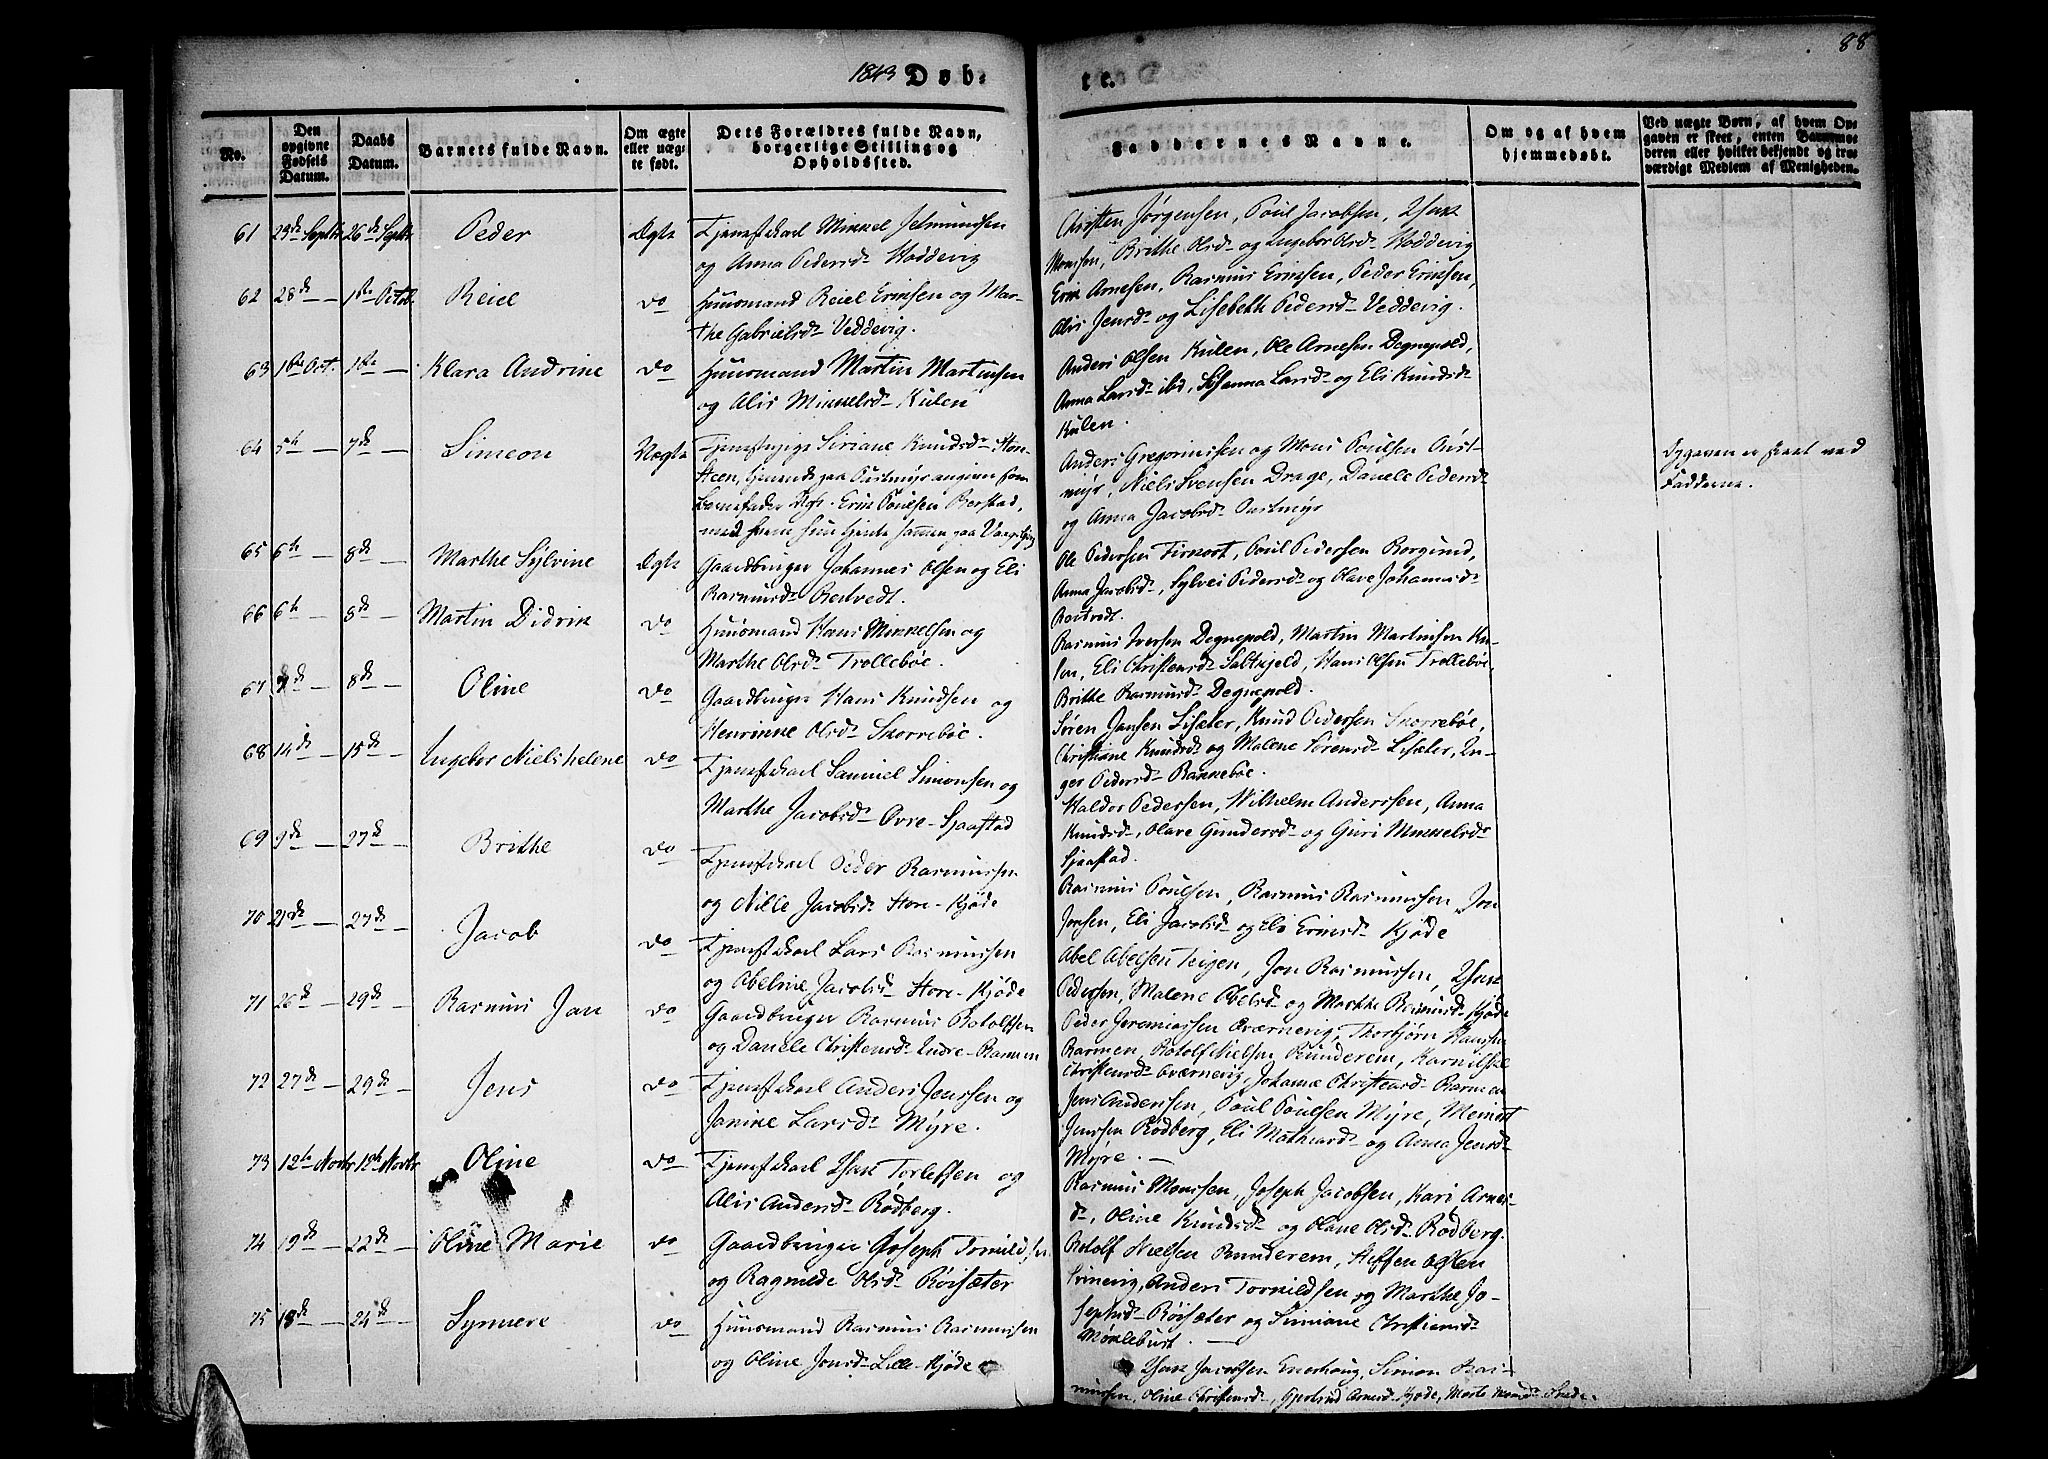 1843 Døb-
te.
88
No.
Den opgivne Fødsels Datum.
Daabs Datum.
Barnets fulde Navn.
Om ægte eller uægte født.
Dets Forældres fulde Navn, borgerlige Stilling og Opholdssted.
Faddernes Navne.
Om og af hvem hjemmedøbt.
Ved uægte Børn, af hvem Opgaven er skeet, enten Barnemoderen eller hvilket bekjendt og troværdigt Medlem af Menigheden.
61 23de Septbr 26de Septbr Peder Ægte Tjenestekarl Mikkel
og Anna Pedersd. Hoddevig
Christen Jørgensen, Poul Jacobsen, Isak
Monssen, Brithe Olsd. og Ingebor Olsd. Hoddevig
62 28de — 1ste Octob. Reiel do Huusmand Reiel Eriksen og Mar-
the Gabrielsd. Veddevig.
Erik Arnesen, Rasmus Eriksen, Peder Eriksen,
Alis Jensd. og Lisebeth Pedersd. Veddevig.
63 1ste Oct. 1ste — Klara Andrine do Huusmand Martin Martinsen
og Alis Mikkelsd. Kulen
Anders Olsen Kulen, Ole Arnesen Degnepold,
Anna Larsd. ibd, Susanna Larsd. og Eli Knudsd.
Kulen.
64 5te — 7de Simeon Uægte Tjenestepige Siriane Knudsd.
tjenende paa Østmyr angiven som
Barnefader Ungk. Erik Poulsen Berstad,
med hvem hun tjente sammen paa
Anders Gregoriussen og Mons Poulsen Øst-
myr, Niels Svensen Drage, Danele Pedersd.
og Anna Jacobsd. Østmyr
Opgaven er skeet ved
Fadderne.
65 6te — 8de Marthe Sylvine Ægte Gaardbruger Johannes Olsen og Eli
Rasmusd. Refvedt.
Ole Pedersen, Poul Pedersen Borgund,
Anna Jacobsd., Sylvei Pedersd. og Olave Johannesd.
66 6te — 8de Martin Didrik do Huusmand Hans Mikkelsen og
Marthe Olsd. Trollebøe.
Rasmus Iversen Degnepold, Martin Martinsen Ku-
len, Eli Christensd. Saltkjeld, Hans Olsen Trollebøe,
Brithe Rasmusd. Degnepold.
67 — 8de Oline do Gaardbruger Hans Knudsen og
Henrikke Olsd. Skorrebøe.
Søren Jansen Lisæter, Knud Pedersen Skorrebøe,
Christiane Knudsd. og Malene Sørensd. Lisæter, In-
ger Pedersd. Bakkebøe.
68 14de — 15de — Ingebor Nielshelene do Tjenestekarl Samuel Simonsen og
Marthe Jacobsd. Øvre-Sjaastad
Haldor Pederssen, Wilhelm Anderssen, Anna
Knudsd., Olave Gundersd. og Guri Mikkelsd.
Sjaastad.
69 9de — 27de — Brithe do Tjenestekarl Peder Rasmussen
og Nille Jacobsd. Store-Kjøde
Rasmus Poulsen, Rasmus Rasmussen, Jon
Jonsen, Eli Jacobsd. og Eli Eriksd. Kjøde
70 21de — 27de — Jacob do Tjenestekarl Lars Rasmussen
og Abeline Jacobsd. Store-Kjøde
Abel Abelsen Teigen, Jon Rasmussen, Isak
Pederssen, Malene Abelsd. og Marthe Rasmusd. Kjøde
71 26de — 29de — Rasmus Jan do Gaardbruger Rasmus Rotolfsen
og Danele Christensd. Indre-Barmen
Peder Jeremiassen Qværnevig, Thorbjørn Hanssen
Barmen, Rotolf Nielsen Runderem, Karnilske
Christensd. Qværnevig, Johanne Christensd. Barmen
72 27de — 29de — Jens do Tjenestekarl Anders Jenssen og
Janike Larsd. Myre.
Jens Andersen, Poul Poulsen Myre, Meindt
Jenssen Rødberg, Eli Mathiasd. og Anna Jensd.
Myre. —
73 12te Novbr 19de Novbr Oline do Tjenestekarl Isak Torlefsen og
Alis Andersd. Rødberg.
Rasmus Monssen, Joseph Jacobsen, Kari Arnes-
d., Oline Knudsd. og Olane Olsd. Rødberg.
74 19de — 22de — Oline Marie do Gaardbruger Joseph Torkildsen
og Ragnilde Olsd. Røisæter
Rotolf Nielsen Runderem, Steffen
Anders Torkildsen og Marthe Jo-
sephsd. Røisæter og Simiane Christiansd.
Mørkleburst. —
75 18de — 24de — Synneve do Huusmand Rasmus Rasmussen
og Oline Jonsd. Lille-Kjøde
Isak Jacobsen Enerhoug, Simon Ras-
mussen, Oline Christensd., Gjertrud Arnesd. Kjøde,